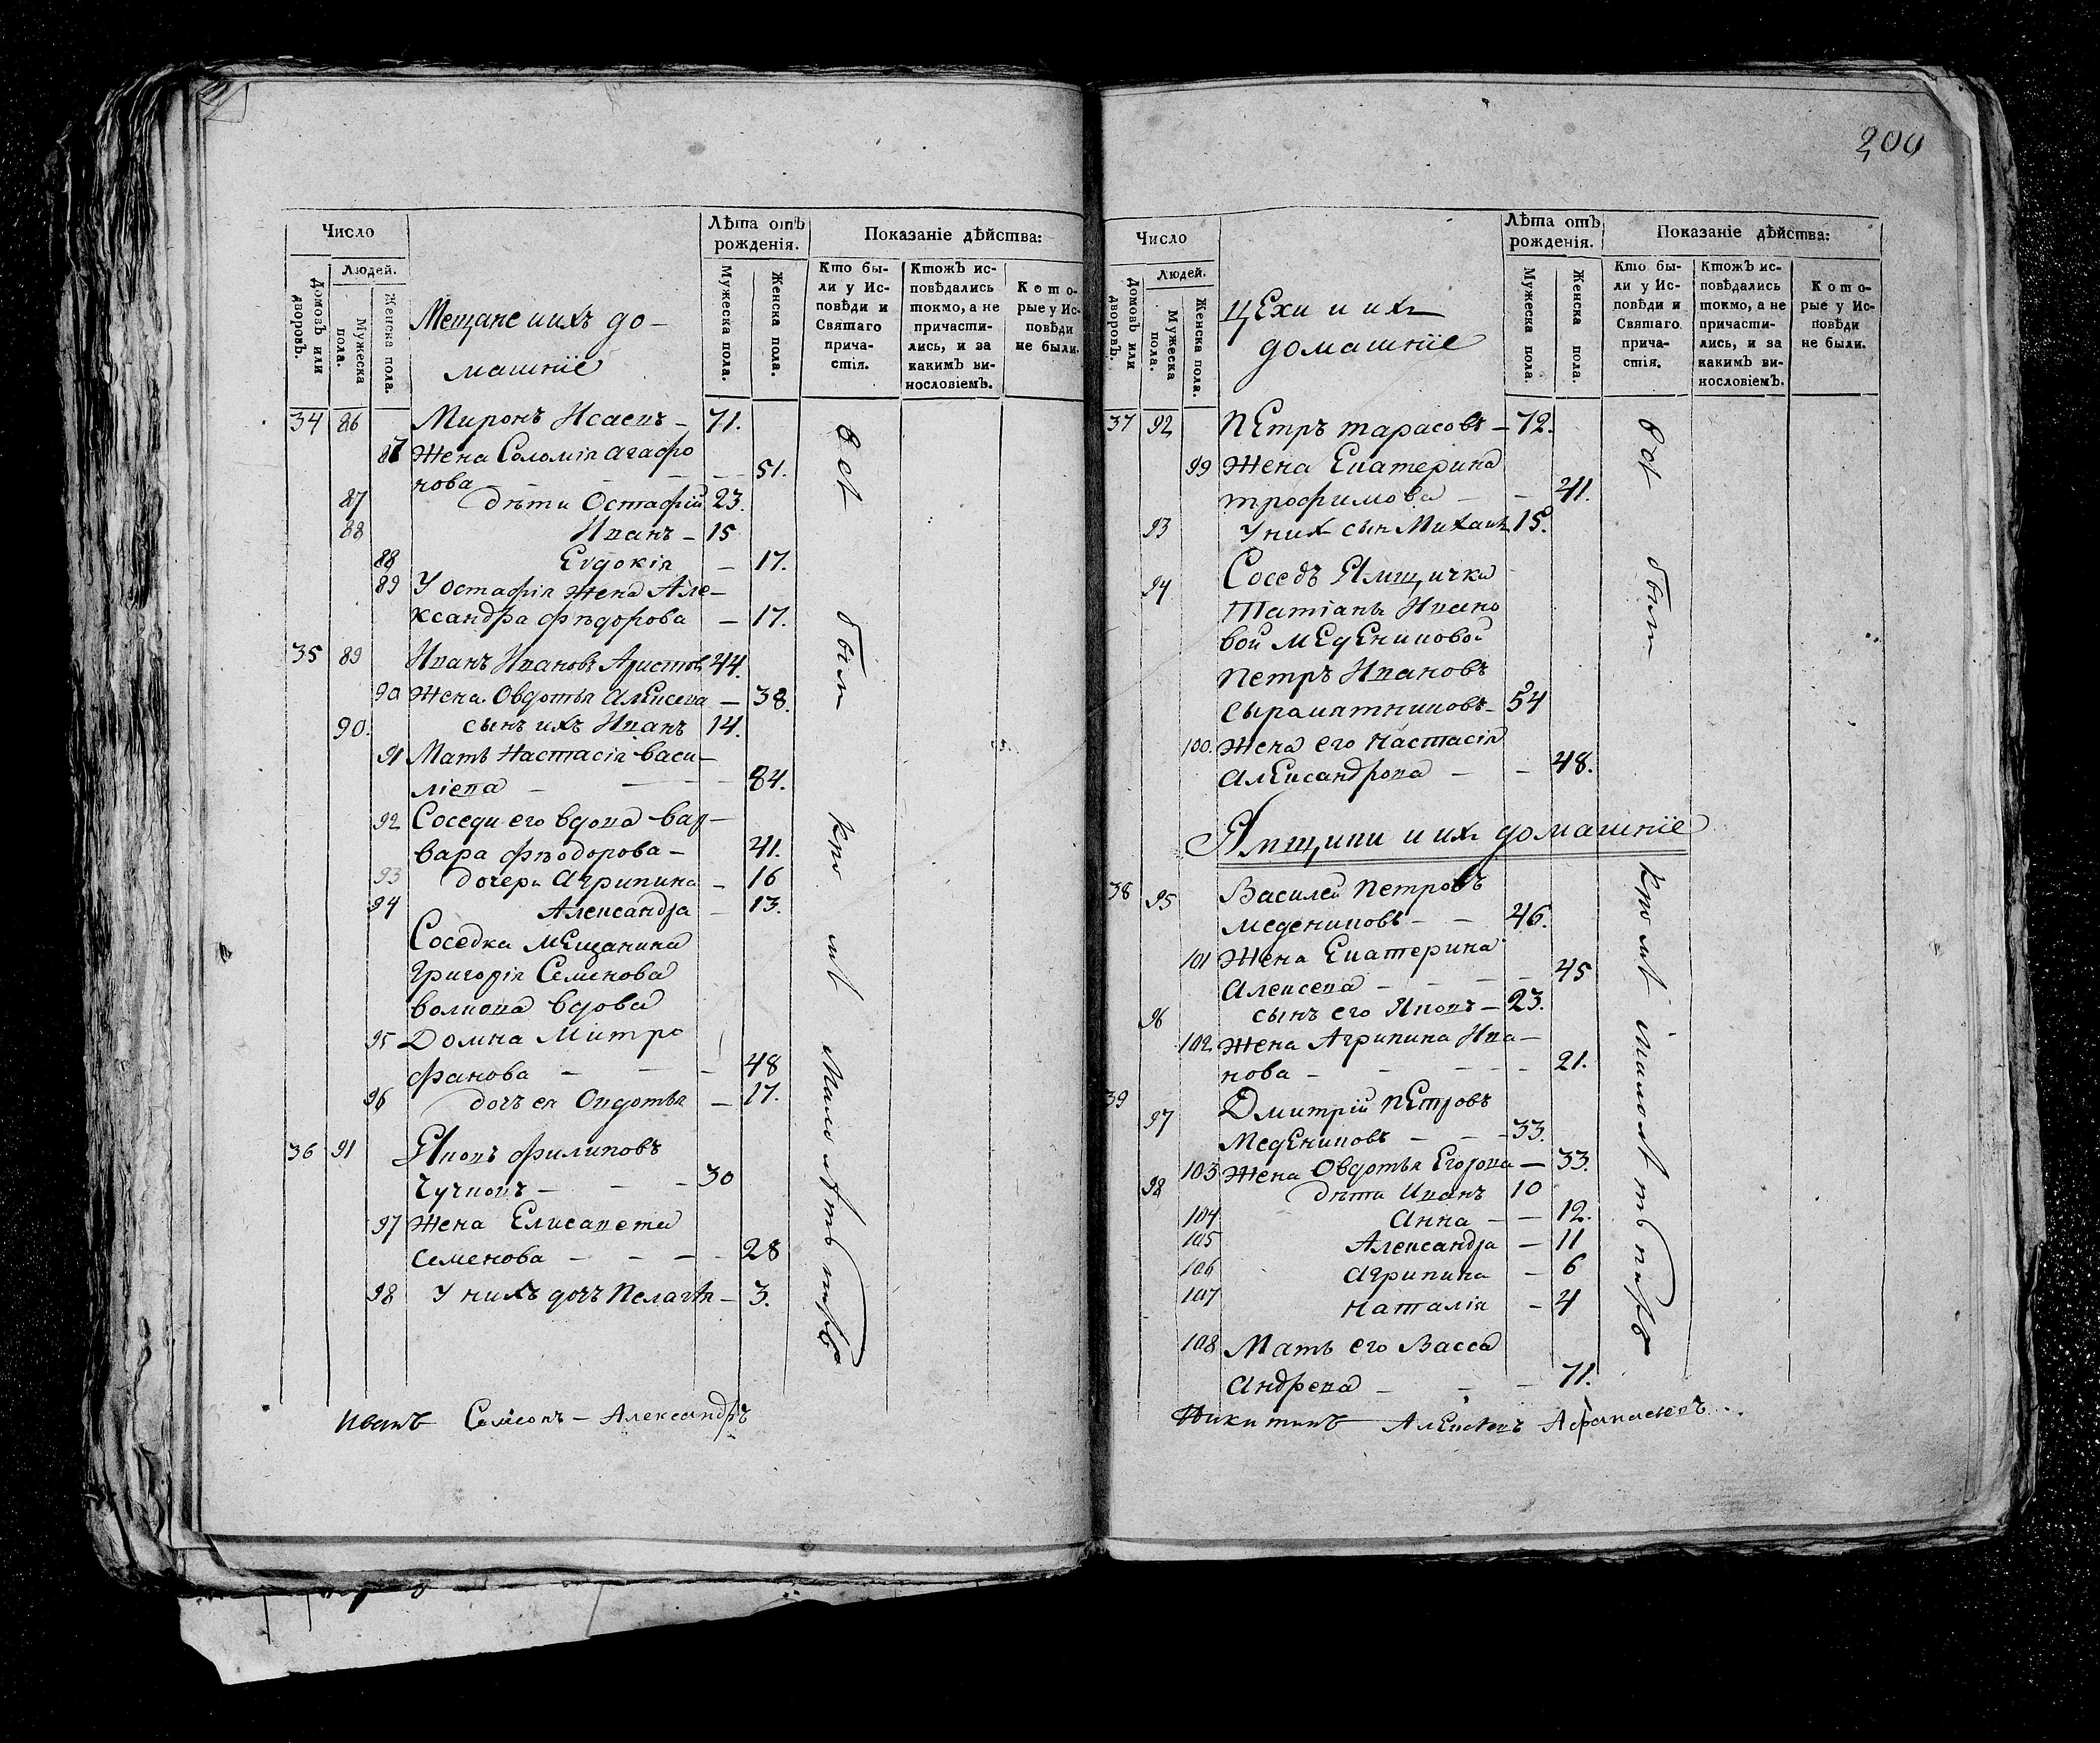 Число
Людей.
Домовъ или дворовъ.
Мужеска пола.
Женска пола.
Мещане иихъ до-
машніе
Лѣта отъ
рожденія.
Мужеска пола.
Женска пола.
Показаніе дѣйства:
Кто бы-
ли у Ис-
повѣди и
Святаго
прича-
стія.
Ктожъ ис-
повѣдались
токмо, а не
причасти-
лись, и за
какимъ ви-
нословіемъ.
Кото-
рые у Ис-
повѣди
не были.
34 86 Миронъ Исаевъ - 71.
87 Жена Соломіа агафо
нова - - - 51.
87 дѣти Остафій 23.
88 Иванъ - 15
88 Евдокія - 17.
89 У остафія жена Але-
ксандра фѣдорова - 17.
35 89 Иванъ Ивановъ Аристов 44.
90 Жена Овдотья алексева - 38.
90. сынъ ихъ Иванъ 14.
91 Мать Настасія васи-
ліева - - 84.
92 Соседи его вдова вар-
вара фѣодорова - 41.
93 дочери агрипина - 16
94 Александра - 13.
Соседка мещанина
григорія Семенова
волкова вдова
95 Домна Митро
фанова - - - 48
96 дочь ея Овдотья - 17.
36 91 Яковъ филиповъ
Чучковъ - - - 30
97 Жена Елисавета
семенова - - - - 28
98 У нихъ дочъ Пелагѣя - 3.
всѣ были
кромѣ малолѣтныхъ
Иванъ Самсонъ - Александръ
200
Число
Людей.
Домовъ или дворовъ.
Мужеска пола.
Женска пола.
цехи и ихъ
домашніе
Лѣта отъ
рожденія.
Мужеска пола.
Женска пола.
Показаніе дѣйства:
Кто бы-
ли у Ис-
повѣди и
Святаго
прича-
стія.
Ктожъ ис-
повѣдались
токмо, а не
причасти-
лись, и за
какимъ ви-
нословіемъ.
Кото-
рые у Ис-
повѣди
не были.
37 92 Петръ тарасовъ - 72.
99 Жена Екатерина
трофимова - - 41.
93 У них сын Михаилъ 15.
94 Соседъ Ямщичка
Татіаны Ивано
вой меденниковой
Петръ Ивановъ
сыромятниковъ - 54
100. Жена его Настасія
александрова - - 48.
Ямщики и их домашніе
38 95 Василей Петровъ
медениковъ - - 46.
101 Жена Екатерина
Алексева - - - - 45
96 сынъ его Яковъ - 23.
102 Жена Агрипина Ива-
нова - - - - - 21.
39 97 Дмитрій Петровъ
Медениковъ - - - 33.
103 Жена Овдотья Егорова - 33.
98 дѣти Иванъ 10
104 Анна - - 12.
105 Александра - 11
106 агрипина - 6
107 наталія - 4
108 Мать его Васса
андрева - - - 71.
всѣ были
кромѣ малолѣтныхъ
Никитинъ Алексѣевъ Афанасьевъ